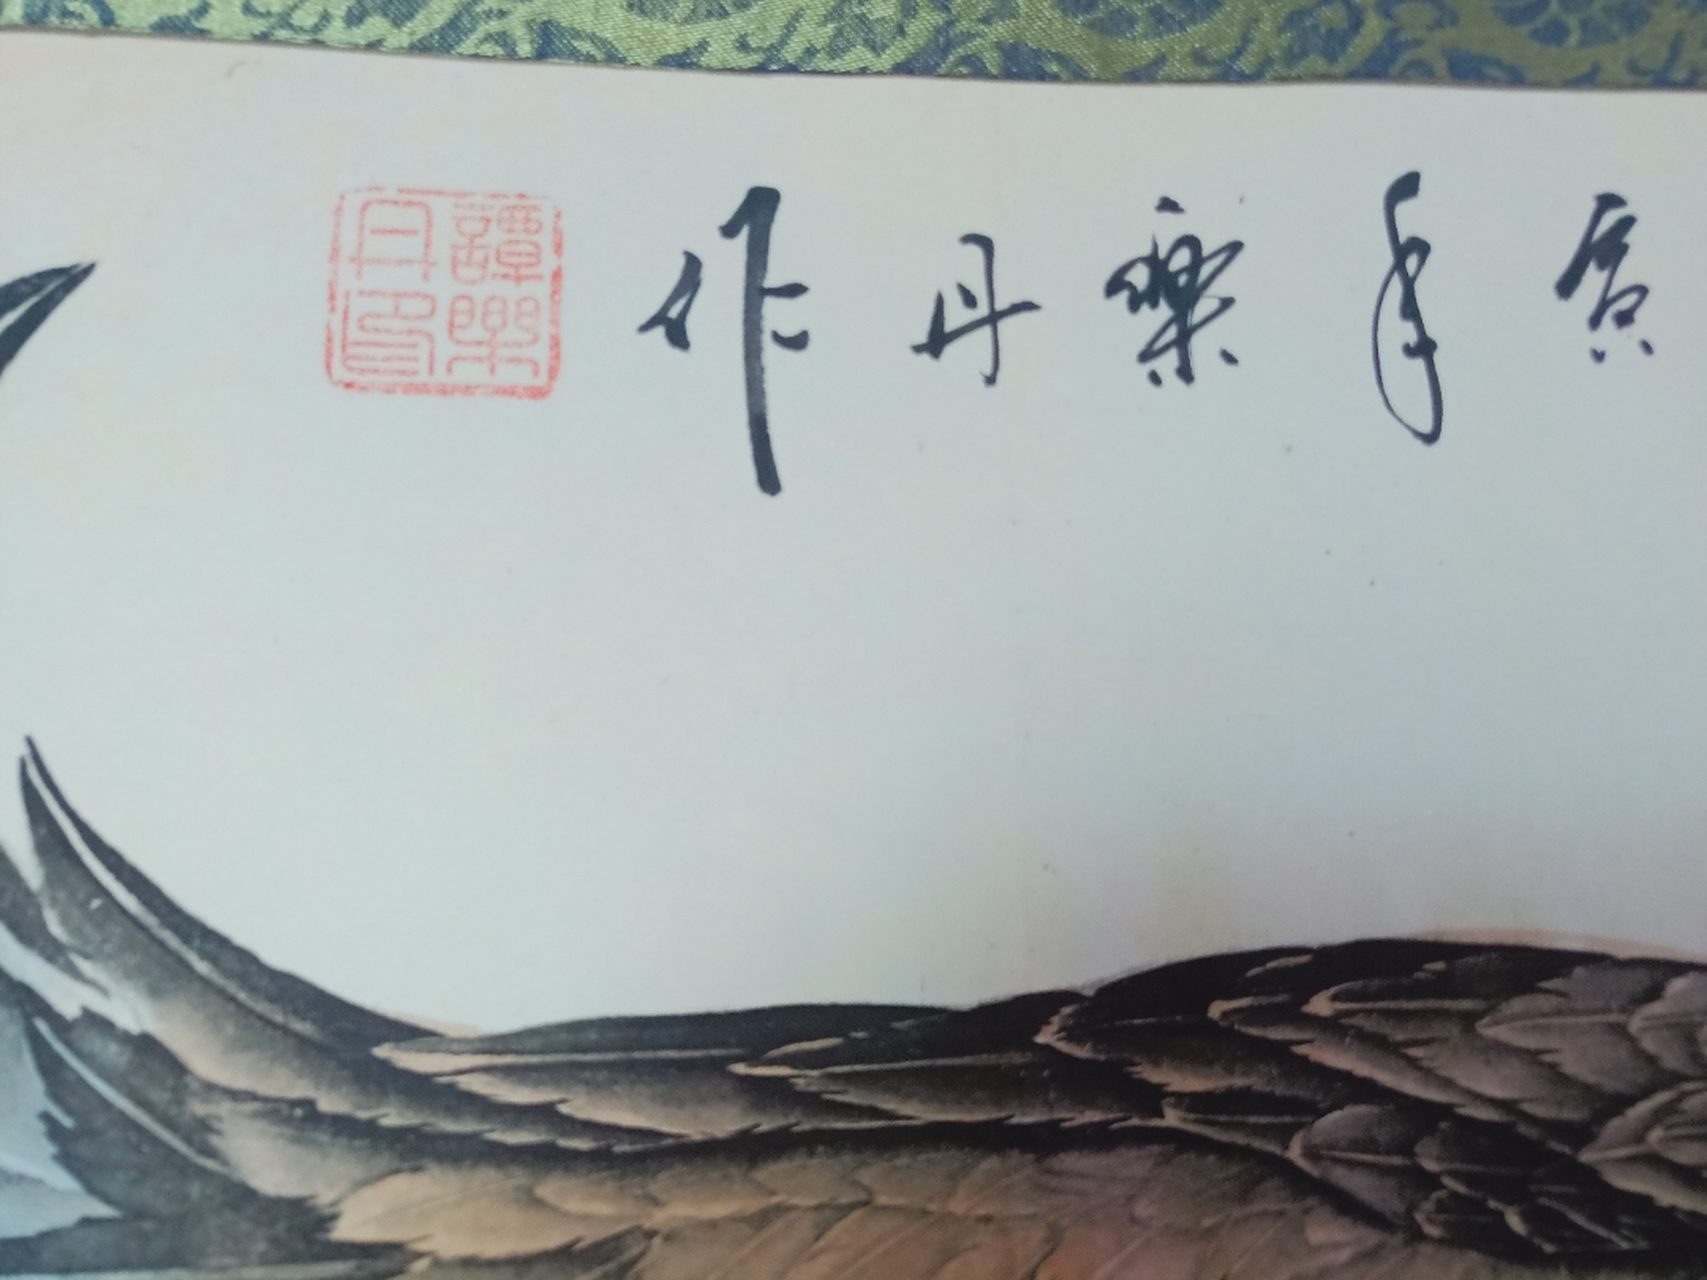 寅年樂丹作
譚樂
丹印